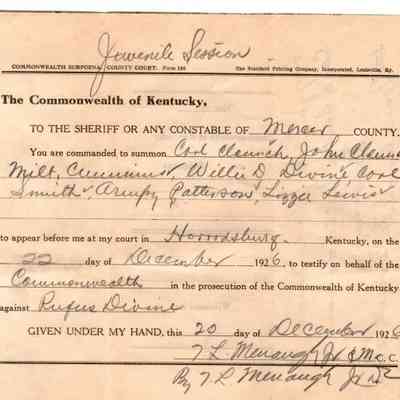 Juvenile Session
COMMONWEALTH SUBPOENA, COUNTY COURT. Form 160 The Standard Printing Company, Incorporated, Louisville, Ky.
The Commonwealth of Kentucky,
TO THE SHERIFF OR ANY CONSTABLE OF Mercer COUNTY.
You are commanded to summon John
Milt, Willie D. Divine
Smith, Patterson, Lizzie Lewis
to appear before me at my court in Harrodsburg. Kentucky, on the
22 day of December 1926, to testify on behalf of the
Commonwealth in the prosecution of the Commonwealth of Kentucky
against Rufus Divine
GIVEN UNDER MY HAND, this 20 day of December 1926
T L Menaugh Jr C. C.
By T. L Menaugh Jr